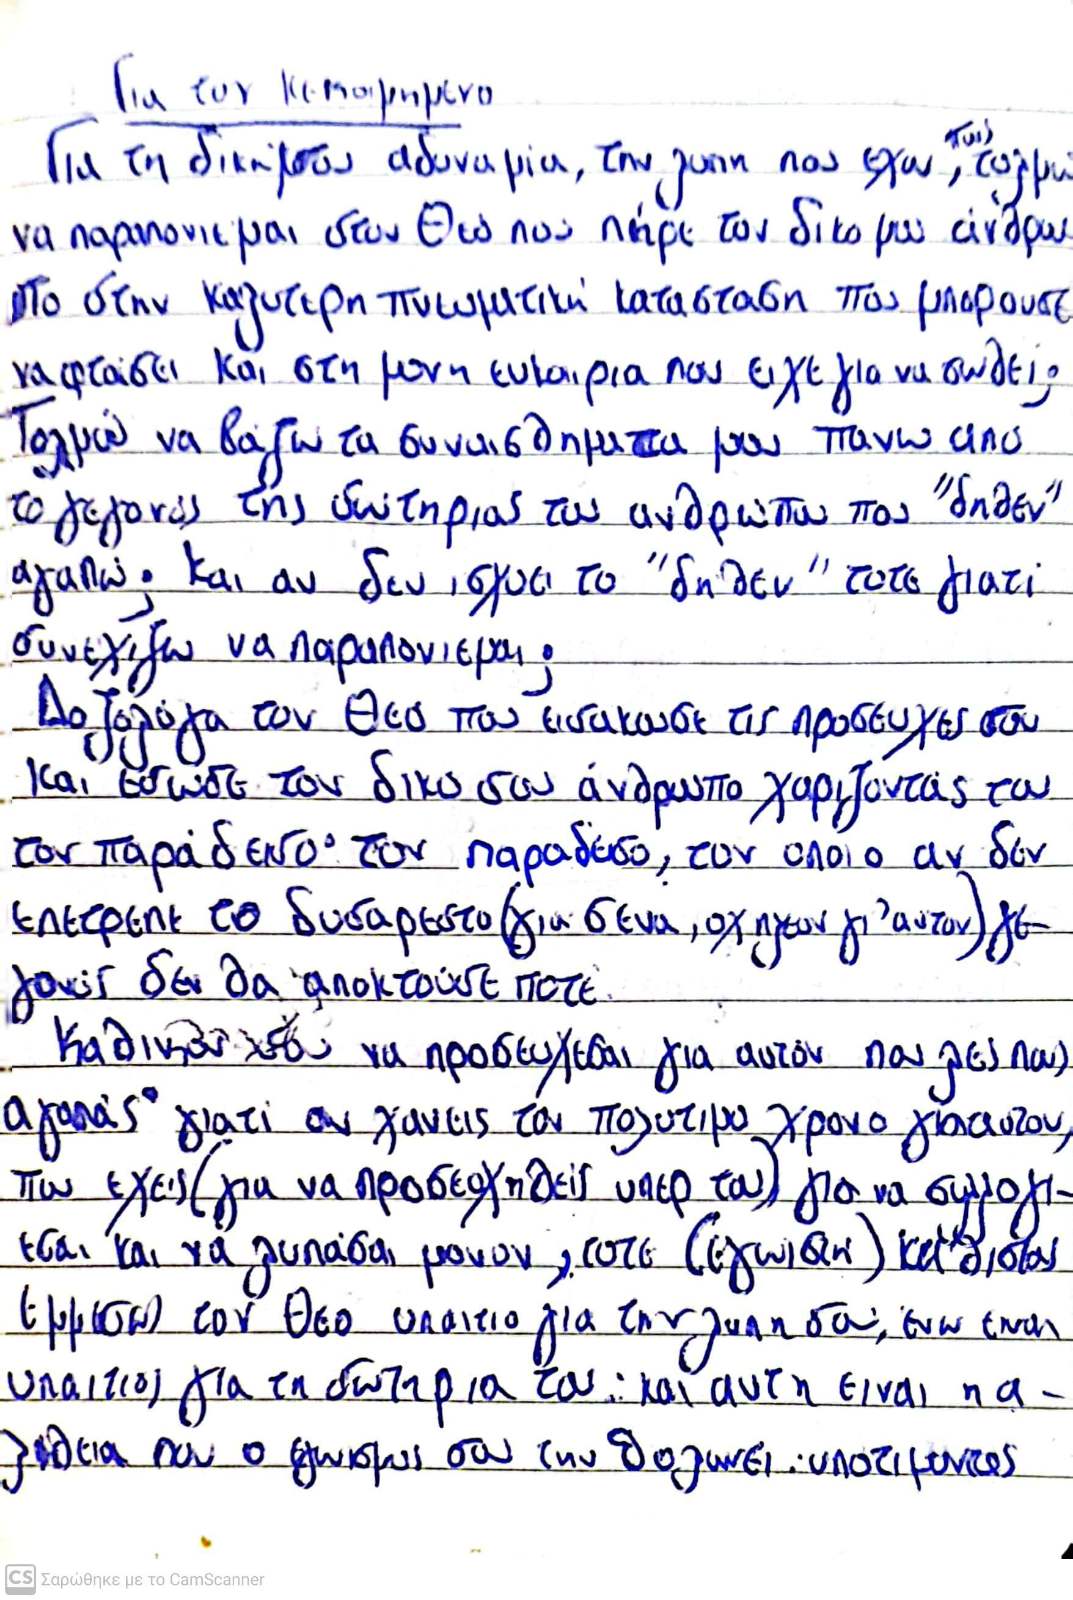 Για τον κεκοιμημενο
Για τη δική σου αδυναμία, την λυπη που εχω, πως τολμω
να παραπονιεμαι στον Θεό που πήρε τον δικο μου άνθρω
πο στην καλυτερη πνευματική κατασταση που μπορουσε
να φτάσει και στη μονη ευκαιρια που ειχε για να σωθεί;
Τολμώ να βάζω τα συναισθηματα μου πανω απο
το γεγονός της σωτηριας του ανθρώπου που "δηθεν"
αγαπώ; και αν δεν ισχυει το "δηθεν" τοτε γιατί
συνεχίζω να παραπονιεμαι;
Δοξολόγα τον Θεο που εισακωσε τις προσευχες σου
και εσωσε τον δικο σου άνθρωπο χαριζοντάς του
τον παράδεισο· τον παραδεισο, τον οποιο αν δεν
επετρεπε το δυσαρεστο (για σενα, οχι πλεον γι' αυτον) γε-
γονός δεν θα αποκτούσε ποτε.
Καθικον σου να προσευχεσαι για αυτόν που λες πως
αγαπάς· γιατί αν χανεις τον πολυτιμο χρονο για αυτον,
που εχεις (για να προσευχηθείς υπερ του) για να συλλογι-
εσαι και να λυπάσαι μονον, τοτε (εγωιστικά) καθιστας
εμμεσως τον Θεο υπαιτιο για την λυπη σου, ενω ειναι
υπαιτιος για τη σωτηρια του: και αυτη ειναι η α-
λήθεια που ο εγωισμος σου την θολωνει: υποτιμοντας
CS Σαρώθηκε με το CamScanner